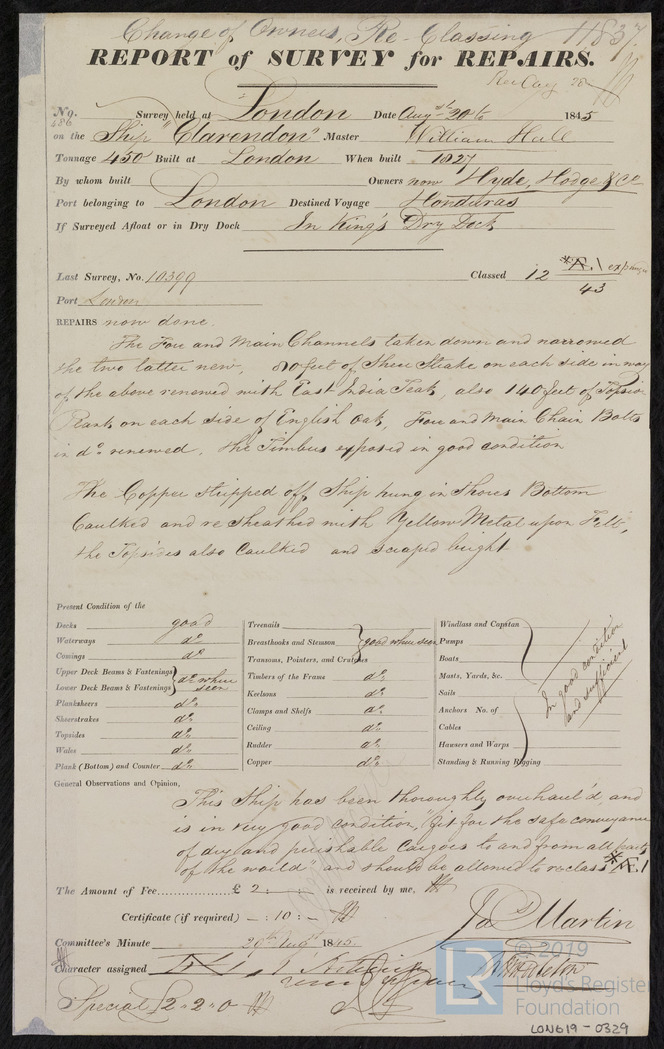 Change of Owners, Re-Classing 11837
REPORT of SURVEY for REPAIRS.
No. 486 Survey held at London Date Augst 20th 1845
on the Ship "Clarendon" Master William Hall
Tonnage 450 Built at London When built 1827
By whom built Owners now Hyde, Hodge & Co
Port belonging to London Destined Voyage Honduras
If Surveyed Afloat or in Dry Dock In King's Dry Dock
Last Survey, No. 10399 Classed 12 *Æ.1
43
Port London
REPAIRS now done.
The Fore and Main Channels taken down and narrowed
the two latter new, 80 feet of Sheer Strake on each side in way
of the above renewed with East India Teak, also 140 feet of Topside
Plank on each side of English Oak, Fore and Main Chain Bolts
in do. renewed, the Timbers exposed in good condition
The Copper stripped off, Ship hung in Shores Bottom
Caulked and resheathed with Yellow Metal upon Felt,
the Topsides also Caulked and scraped bright
Present Condition of the
Decks good
Waterways do.
Comings do.
Upper Deck Beams & Fastenings
Lower Deck Beams & Fastenings do. where seen
Planksheers do.
Sheerstrakes do.
Topsides do.
Wales do.
Plank (Bottom) and Counter do.
Treenails
Breasthooks and Stemson good where seen
Transoms, Pointers, and Crutches
Timbers of the Frame do.
Keelsons do.
Clamps and Shelfs do.
Ceiling do.
Rudder do.
Copper do.
Windlass and Capstan
Pumps
Boats
Masts, Yards, &c.
Sails
Anchors No. of
Cables
Hawsers and Warps
Standing & Running Rigging
In good condition
and sufficient
General Observations and Opinion,
This Ship has been thoroughly overhaul'd, and
is in very good condition, "fit for the safe conveyance
of dry and perishable Cargoes to and from all parts
of the world" and should be allowed to reclass *Æ.1
The Amount of Fee £ 2 : - : - is received by me,
Certificate (if required) - : 10 : -
Jas Martin
Committee's Minute 29th Augst 1845
Character assigned
Special £2-2-0
© 2019
LR
Lloyd's Register
Foundation
LON619-0329